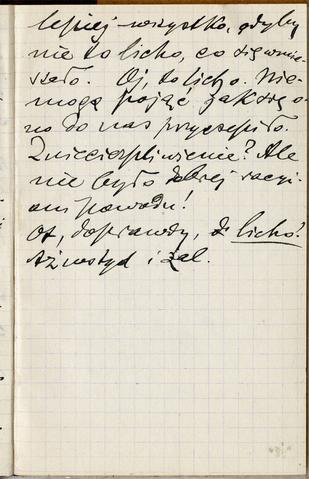 lepiej wszystko, gdyby
nie to licho, co się wmie-
szało. Oj, to licho. Nie
mogę pojąć jak się o-
no do nas przyczepiło.
Zniecierpliwienie? Ale
nie było dobrej racyi
ani powodu!
Ot, doprawdy, licho!
Aż wstyd i żal.